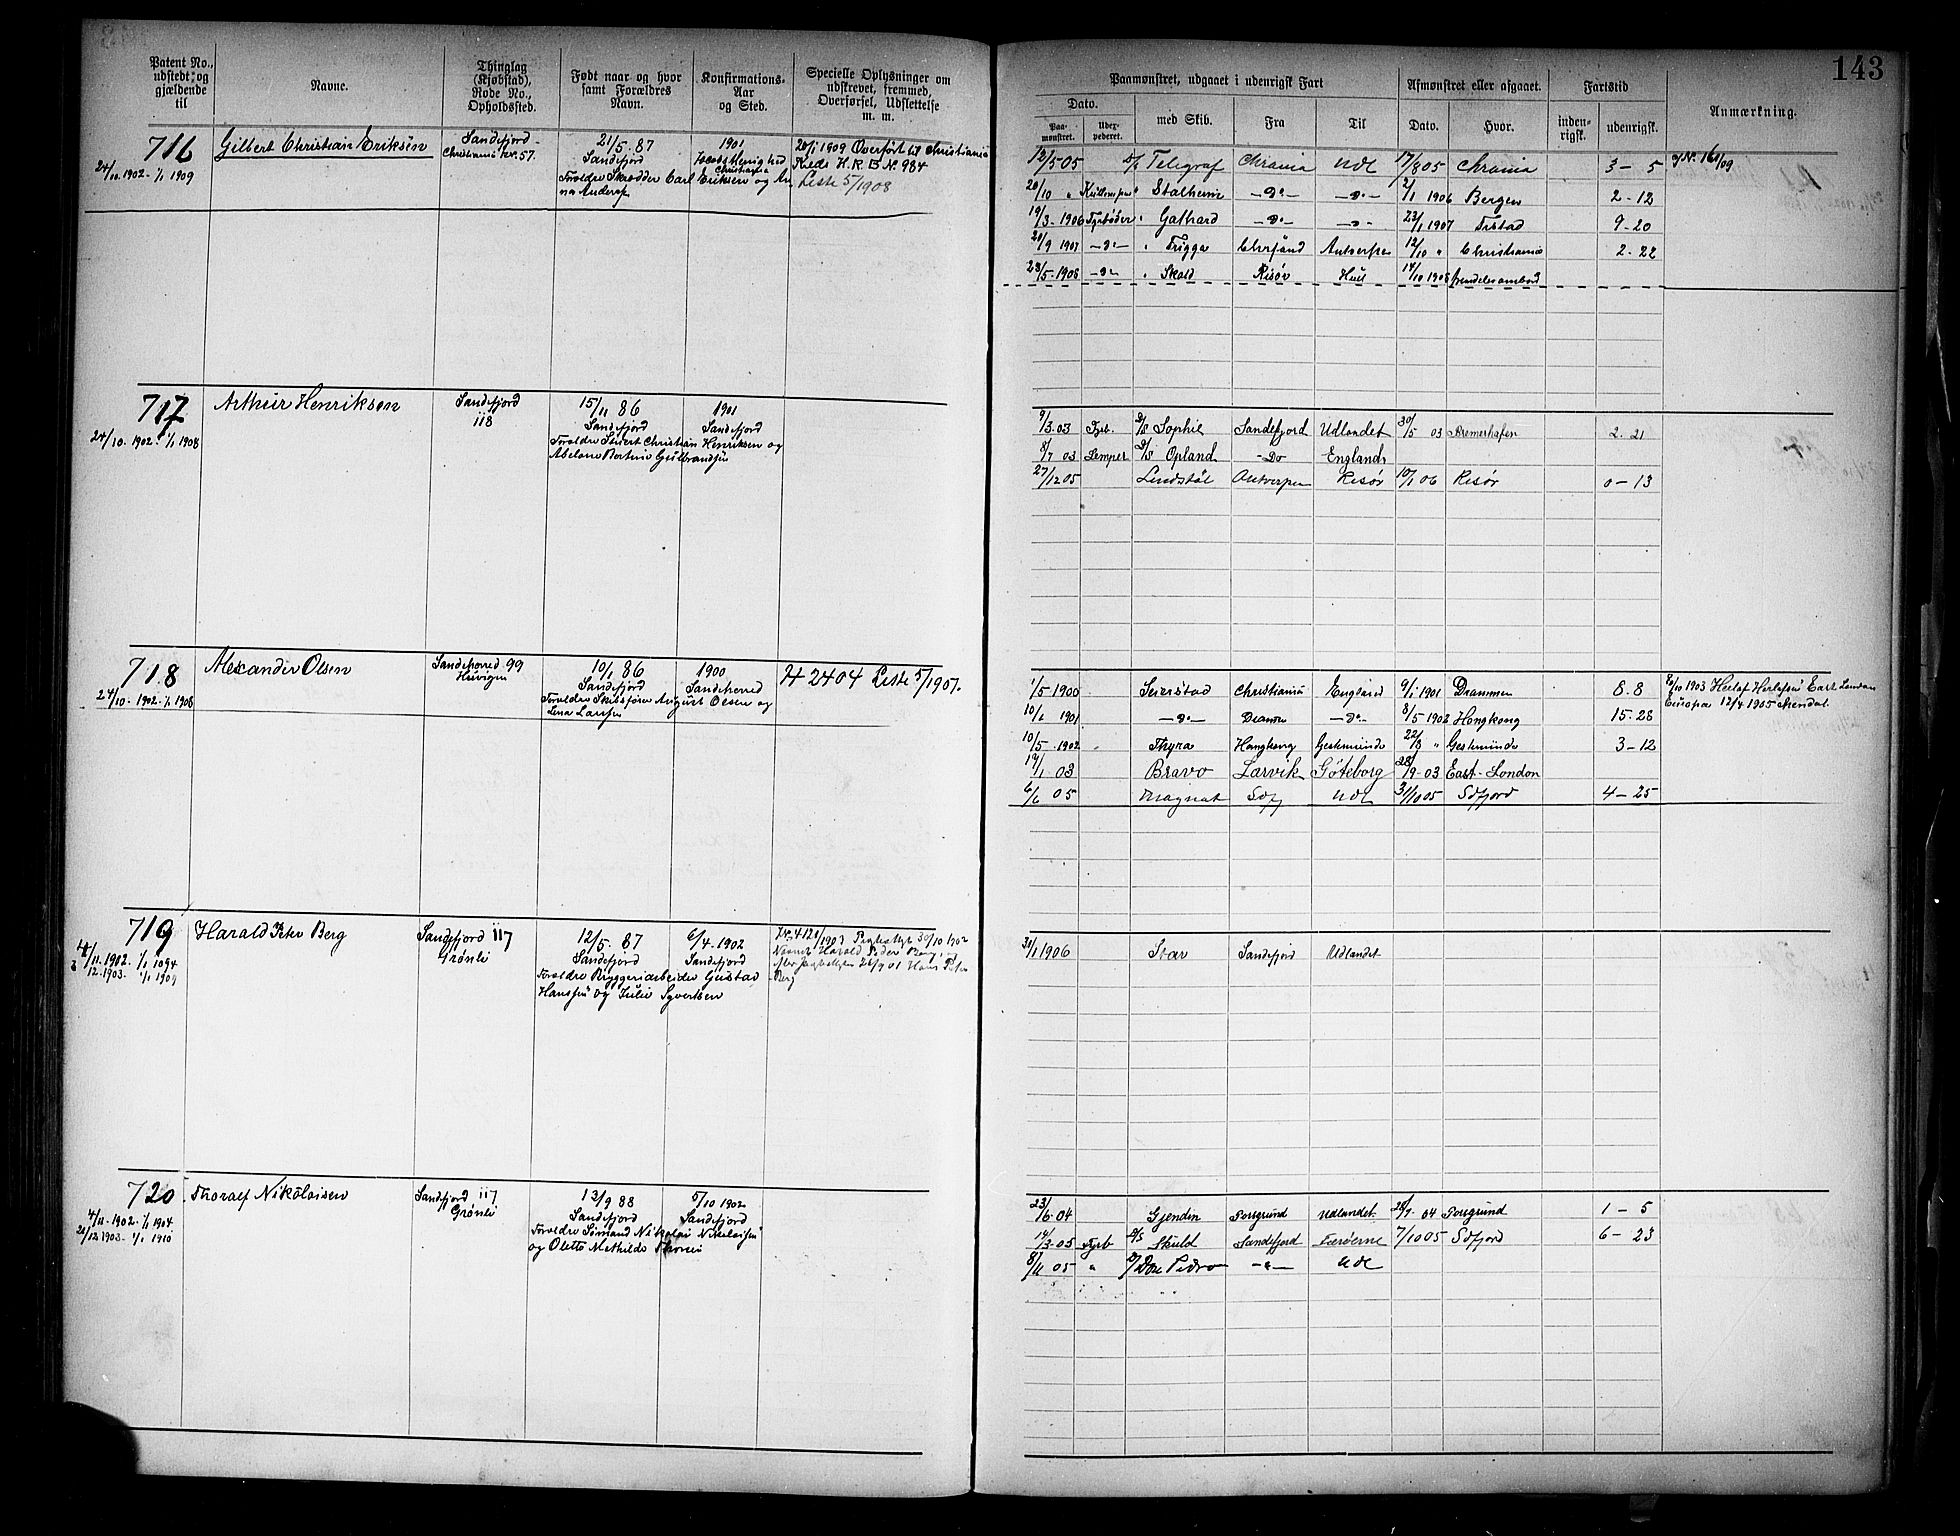 143
Patent No., udstedt og gjældende til
Navne.
Thinglag (Kjøbstad), Rode No., Opholdssted.
Født naar og hvor samt Forældres Navn.
Konfirmations-Aar og Sted.
Specielle Oplysninger om udskrevet, fremmed, Overførsel, Udslettelse m. m.
Paamønstret, udgaaet i udenrigsk Fart
Afmønstret eller afgaaet.
Fartstid
Anmærkning.
Dato.
Paa-mønstret.
med Skib.
Fra
Til
Dato.
Hvor.
inden-rigsk.
udenrigsk.
716
24/10. 1902 - 1/1 1909
Gilbert Christian Eriksen
Sandefjord -
Christiania
21/5. 87
Sandefjord
Forældre Skrædder Carl Eriksen og Anna Anderss
1901
Christiania
20/1 1909 Overført til Christiania
Kreds H. R. B N. 984
Liste 5/1908
12/5 05 D/S Telegraf Chrania Udl 17/8 05 Chrania 3 - 5
20/10 " Stalheim -Do- -Do- 2/1 1906 Bergen 2 - 12
19/3 - 1906 Fyrbøder " Gothard -Do- -Do- 22/1 1907 9 - 20
20/9 1907 -Do- " Frigga Antwerpen 12/10 " Christiania 2 - 22
23/5 - 1908 -Do- " Skald Risør Hull 14/10 1908
717
24/10. 1902. 1/1 1908
Arthur Henriksen
Sandefjord
118
15/11 86
Sandefjord
Forældre Sivert Christian Henriksen og
Abelone Bertine Gulbrandsen
1901
Sandefjord
9/3 03 Fyrb. D/S Sophie Sandefjord Udlandet 30/5 03 Bremerhafen 2. 21
8/7 03 Lemper D/S Opland -Do England
27/12 05 Lindstøl Antwerpen Risør 10/1 06 Risør 0 - 13
718
24/10. 1902. 1/1 1908
Alexander Olsen
Sandeherred 99
10/1 86
Sandefjord
Forældre Skibsfører August Olsen og
Lina Larsen
1900
Sandeherred
H 2404 Liste 5/1907.
1/5 1900 Seierstad Christiania England 9/1 1901 Drammen 8. 8
10/1 1901 -Do- Dramn -Do- 8/5 1902 Hongkong 15 - 28
10/5. 1902 Thyra Hongkong Gestemünde 22/8 " Gestemünde 3 - 12
14/1 03 Bravo Larvik Göteborg 28/9 - 03 East-London
6/6 05 Magnat Sdfj Udl 31/10 05 Sdfjord 4 - 25
719
4/11. 1902.
12. 1903. 1/1 1909
Harald Peter Berg
Sandefjord 117
Grønli
12/5. 87
Sandefjord
Forældre Bryggeriarbeider Gustav
Hanssen og Julie Syvertsen
6/4. 1902
Sandefjord
30/1 1906 Star Sandefjord Udlandet
720
4/11 - 1902. 1/1 1904
21/12 1903 - 1/1 1910
Thoralf Nikolaisen
Sandefjord 117
Grønli
13/9 88
Sandefjord
Forældre Sømand Nikolai Nikolaisen
og Olette Mathilde
5/10 1902
Sandefjord
23/6 - 04 Gjendin Porsgrund Udlandet 28/7 - 04 Porsgrund 1 - 5
14/3 - 05 Fyrb D/S Skuld Sandefjord Færøerne 7/10 05 Sdfjord 6 - 23
8/11 05 " D/S Don Pedro -"- Udl